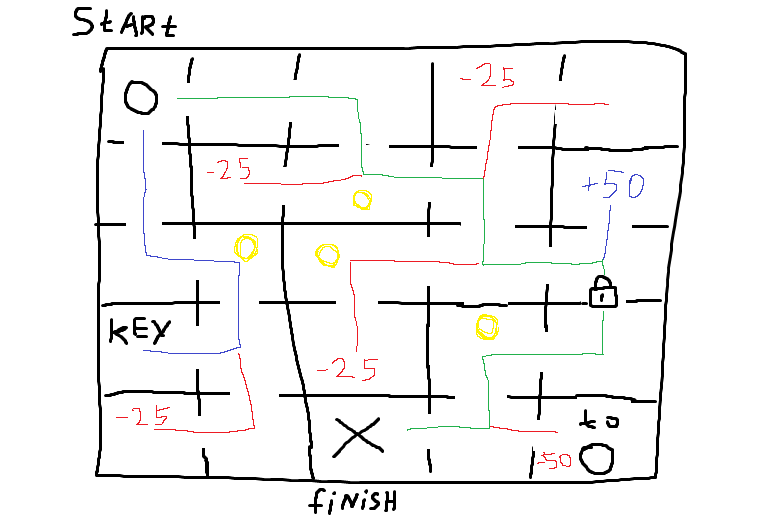 START
-25
-25
+50
KEY
-25
-25
to
-50
FINISH